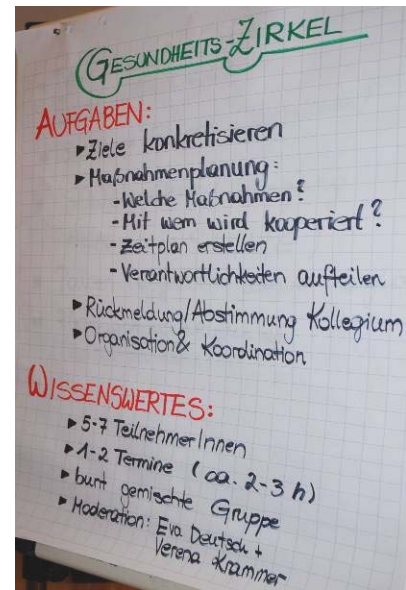 GESUNDHEITS-ZIRKEL
AUFGABEN:
▸Ziele konkretisieren
▸Maßnahmenplanung:
-Welche Maßnahmen?
-Mit wem wird kooperiert?
-Zeitplan erstellen
-Verantwortlichkeiten aufteilen
▸Rückmeldung/Abstimmung Kollegium
▸Organisation & Koordination
WISSENSWERTES:
▸5-7 TeilnehmerInnen
▸1-2 Termine (ca. 2-3 h)
▸bunt gemischte Gruppe
▸Moderation: Eva Deutsch +
Verena Krammer